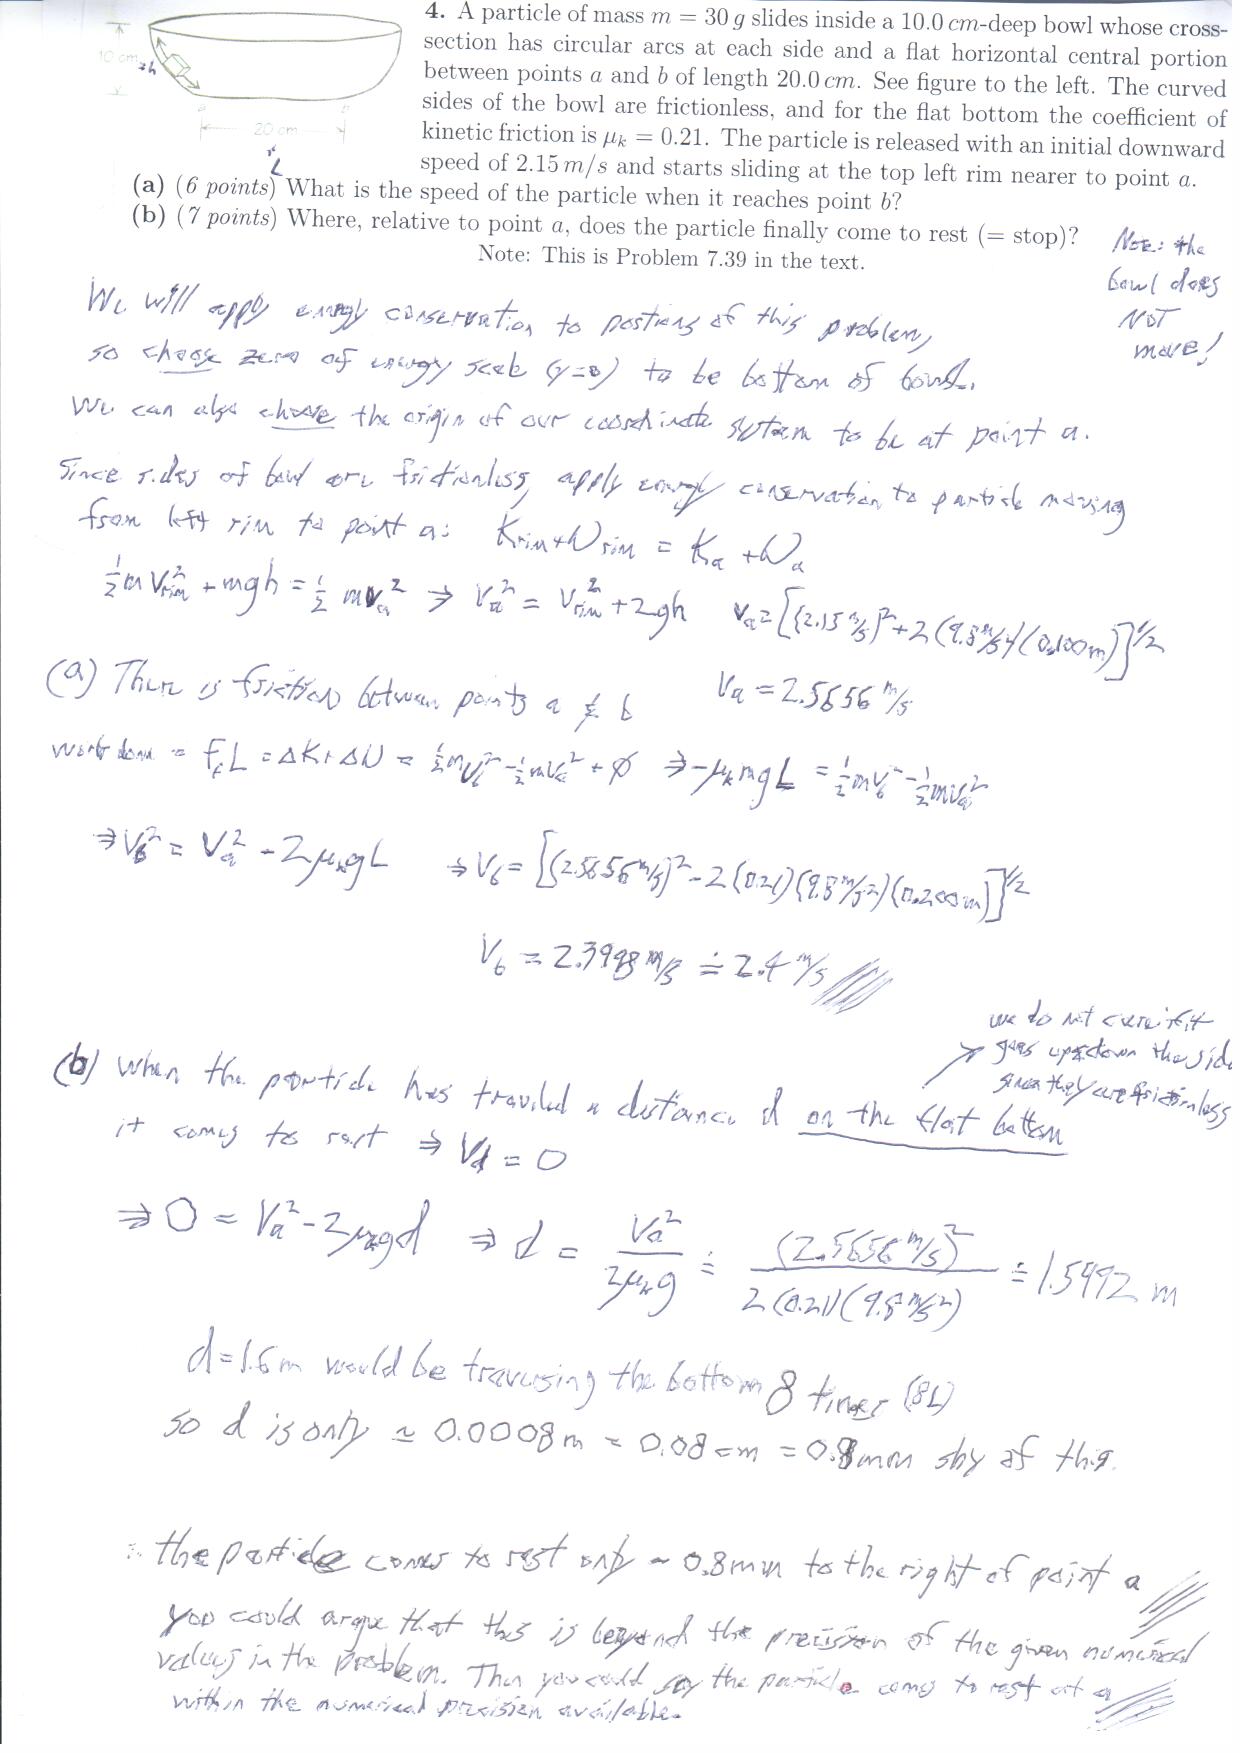 4. A particle of mass m = 30 g slides inside a 10.0 cm-deep bowl whose cross-
section has circular arcs at each side and a flat horizontal central portion
between points a and b of length 20.0 cm. See figure to the left. The curved
sides of the bowl are frictionless, and for the flat bottom the coefficient of
kinetic friction is μk = 0.21. The particle is released with an initial downward
speed of 2.15 m/s and starts sliding at the top left rim nearer to point a.
10 cm
=h
20 cm
=L
(a) (6 points) What is the speed of the particle when it reaches point b?
(b) (7 points) Where, relative to point a, does the particle finally come to rest (= stop)?
Note: This is Problem 7.39 in the text.
Note: the
bowl does
NOT
move!
We will apply energy conservation to portions of this problem,
so choose zero of energy scale (y=0) to be bottom of bowl.
We can also choose the origin of our coordinate system to be at point a.
Since sides of bowl are frictionless, apply energy conservation to particle moving
from left rim to point a: Krim + Urim = Ka + Ua
½ m Vrim² + mgh = ½ m Va² ⇒ Va² = Vrim² + 2gh Va = [(2.15 m/s)² + 2(9.8 m/s²)(0.100m)]^1/2
Va = 2.5656 m/s
(a) There is friction between points a & b
work done = ff L = ΔK + ΔU = ½ m Vb² - ½ m Va² + 0 ⇒ -μk mg L = ½ m Vb² - ½ m Va²
⇒ Vb² = Va² - 2μk g L ⇒ Vb = [(2.5656 m/s)² - 2(0.21)(9.8 m/s²)(0.200m)]^1/2
Vb = 2.3998 m/s ≐ 2.4 m/s
we do not care if it
goes up & down the side
since they are frictionless
(b) When the particle has traveled a distance d on the flat bottom
it comes to rest ⇒ Vd = 0
⇒ 0 = Va² - 2μk g d ⇒ d = Va² / 2μk g ≐ (2.5656 m/s)² / 2(0.21)(9.8 m/s²) ≐ 1.5992 m
d = 1.6m would be traversing the bottom 8 times (8L)
so d is only ≈ 0.0008m = 0.08cm = 0.8mm shy of this.
∴ the particle comes to rest only ~ 0.8mm to the right of point a
you could argue that this is beyond the precision of the given numerical
values in the problem. Then you could say the particle comes to rest at a
within the numerical precision available.